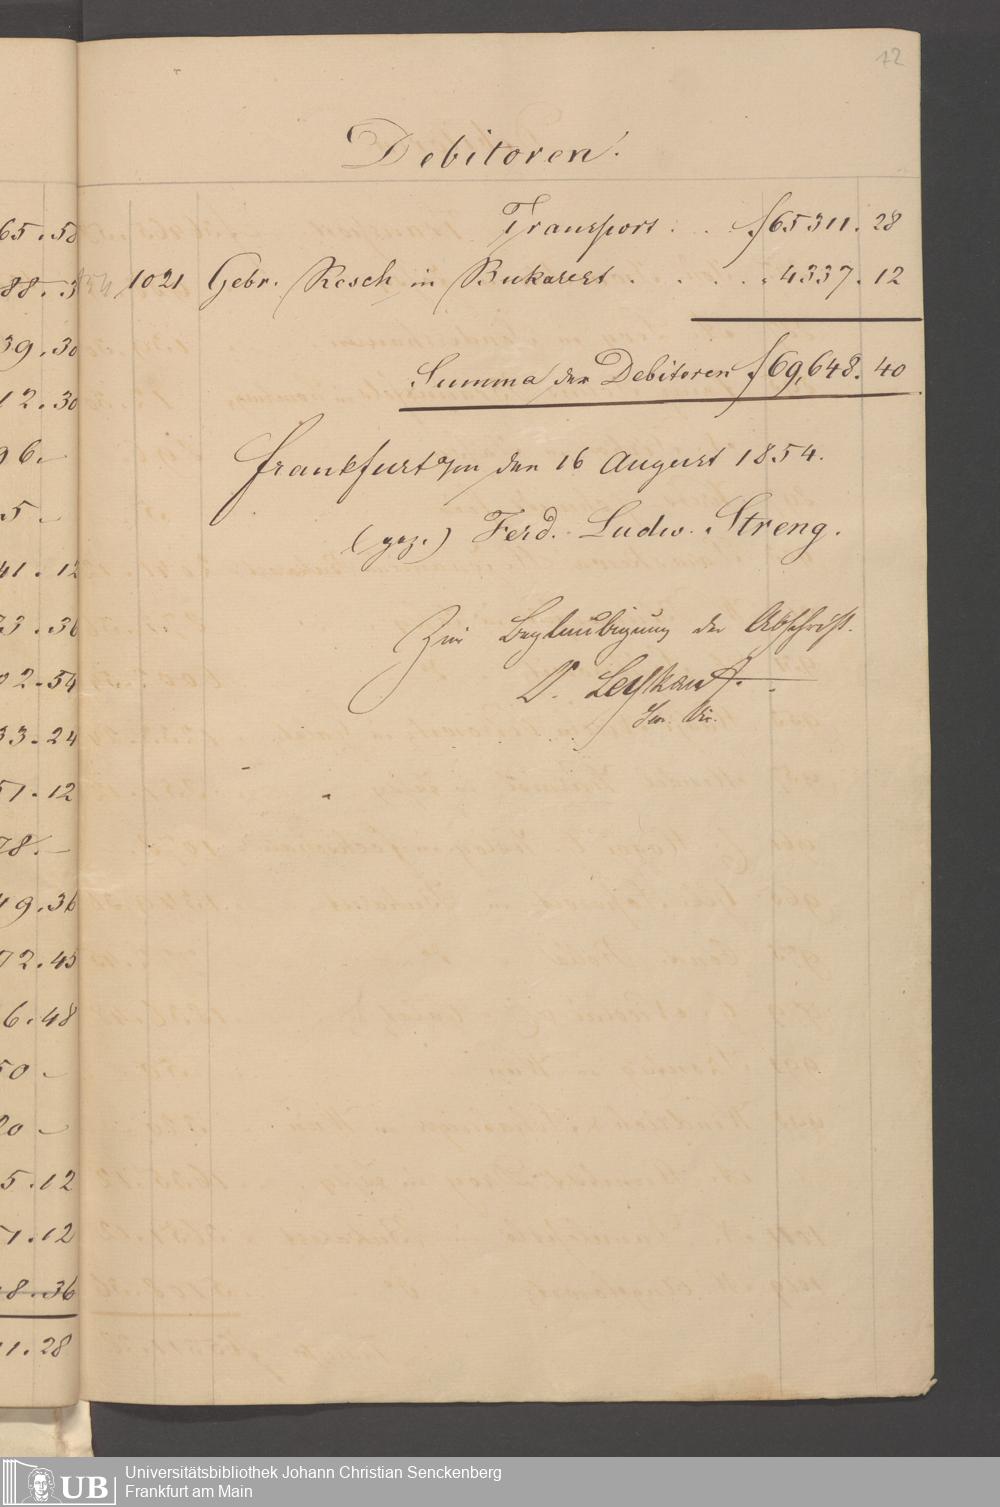 12
Debitoren.
Transport . . . f 65311. 28
1021 Gebr. Resch in Bukarest . . . . . 4337. 12
Summa der Debitoren f 69,648. 40
Frankfurt a/m den 16 August 1854.
(gez.) Ferd. Ludw. Streng.
Zur Beglaubigung der Abschrift.
D.
65.50
88.3
39.30
12.30
96.-
5 -
41.12
73.36
02.54
33.24
51.12
78.-
49.36
72.45
6.48
50 -
20 -
5.12
51.12
8.36
11.28
UB
Universitätsbibliothek Johann Christian Senckenberg
Frankfurt am Main